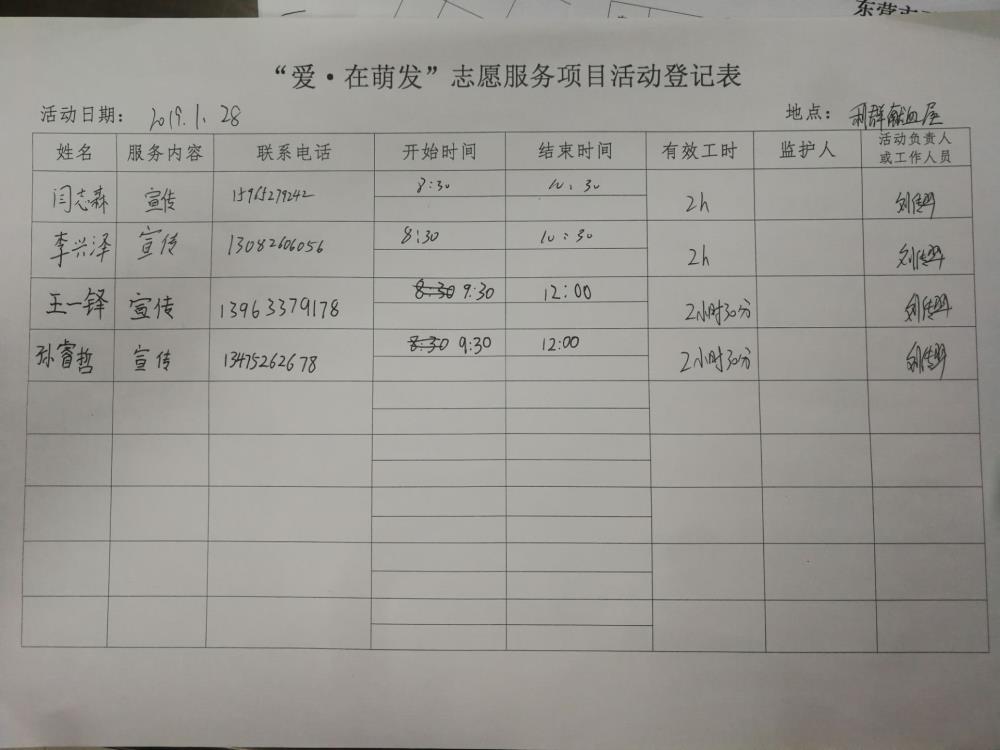 东营市
“爱·在萌发”志愿服务项目活动登记表
活动日期： 2019.1.28 地点： 利群献血屋
姓名 服务内容 联系电话 开始时间 结束时间 有效工时 监护人 活动负责人或工作人员
闫志森 宣传 15965279242 8:30 10:30 2h
李兴泽 宣传 13082606056 8:30 10:30 2h
王一铎 宣传 13963379178 8:30 9:30 12:00 2小时30分
孙睿哲 宣传 13475262678 8:30 9:30 12:00 2小时30分